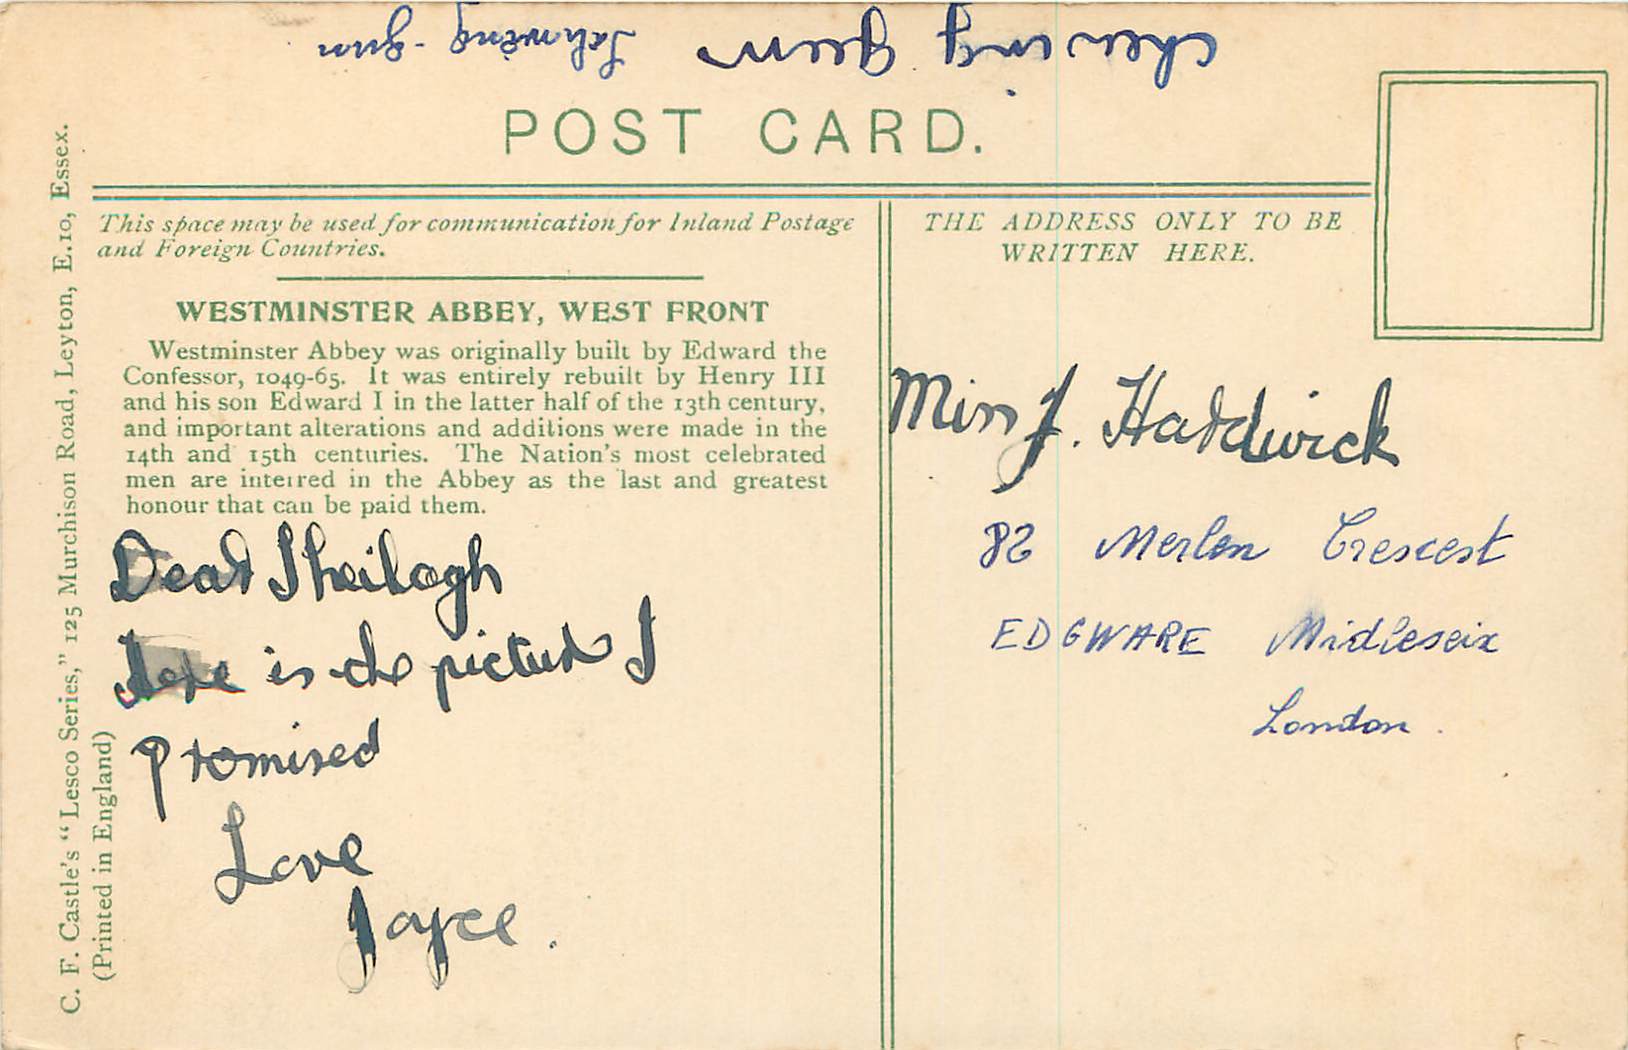 chewing gum
POST CARD.
This space may be used for communication for Inland Postage
and Foreign Countries.
THE ADDRESS ONLY TO BE
WRITTEN HERE.
WESTMINSTER ABBEY, WEST FRONT
Westminster Abbey was originally built by Edward the
Confessor, 1049-65. It was entirely rebuilt by Henry III
and his son Edward I in the latter half of the 13th century,
and important alterations and additions were made in the
14th and 15th centuries. The Nation's most celebrated
men are interred in the Abbey as the last and greatest
honour that can be paid them.
Dear Sheilagh
Here is the picture I
promised
Love
Joyce.
Miss J. Hardwick
82 Merlon Crescest
EDGWARE Midleseix
London.
C. F. Castle's "Lesco Series," 125 Murchison Road, Leyton, E.10, Essex.
(Printed in England)